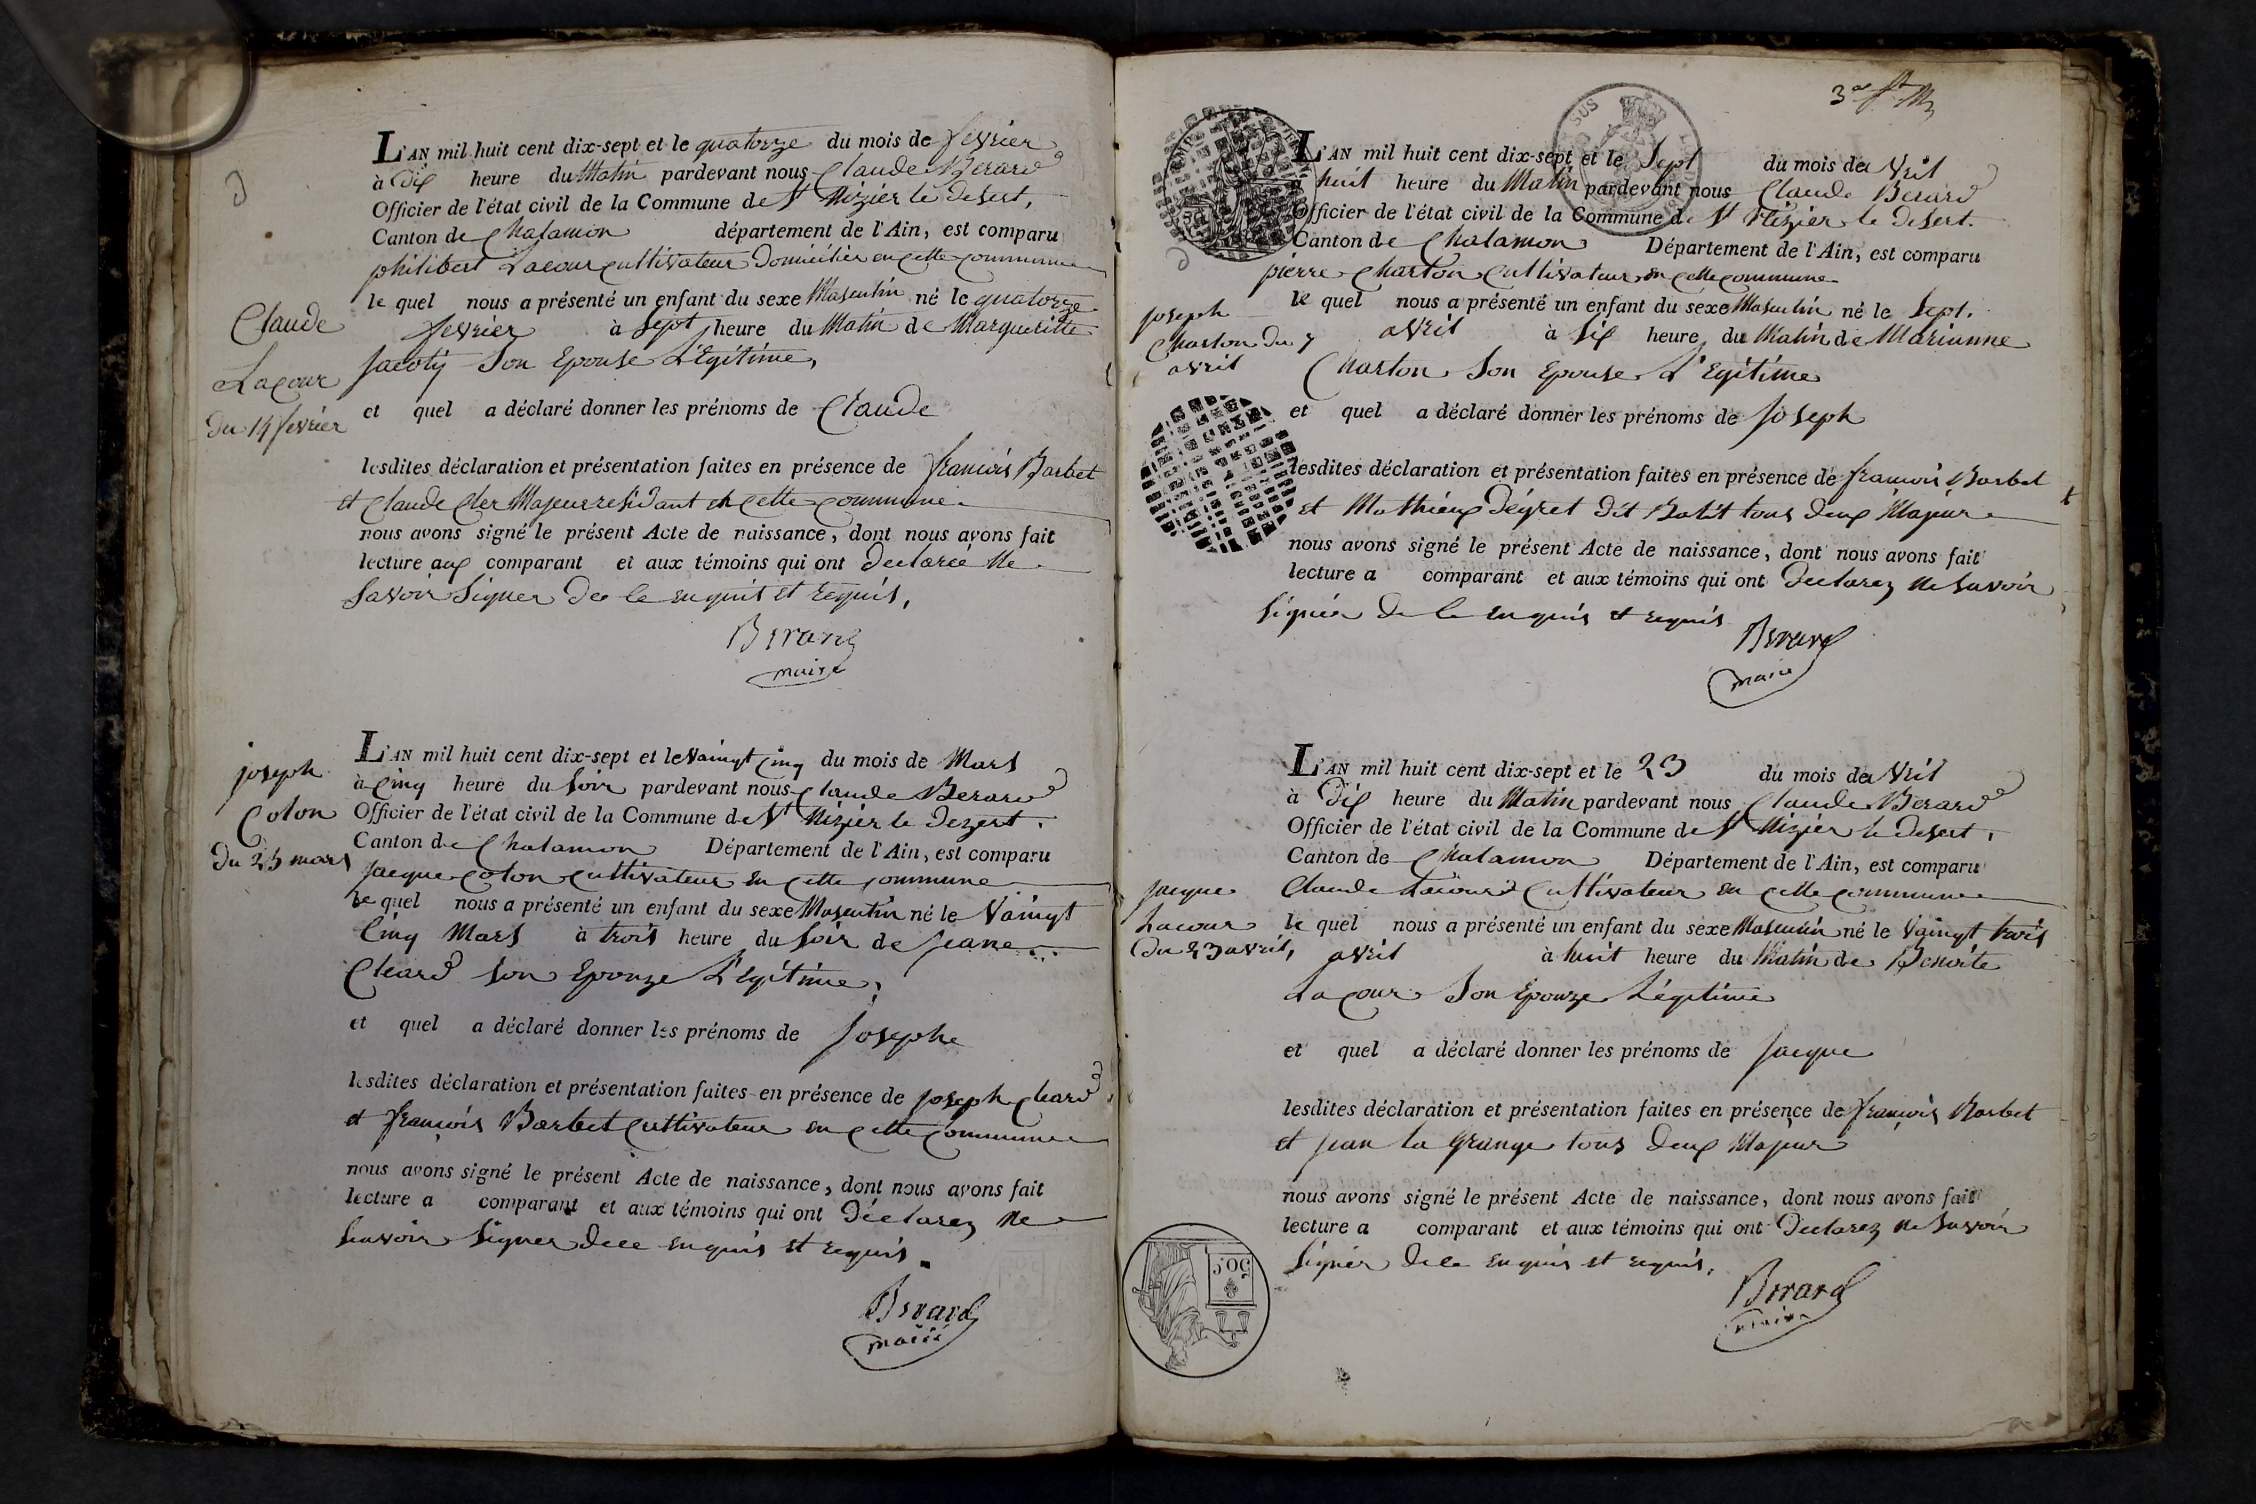 L'AN mil huit cent dix-sept et le quatorze du mois de fevrier
à Dix heure du Matin pardevant nous Claude Berard
Officier de l'état civil de la Commune de St Nizier le desert,
Canton de Chalamon département de l'Ain, est comparu
philibert Lacour cultivateur Domicilier en cette commune
le quel nous a présenté un enfant du sexe Masculin né le quatorze
fevrier à Sept heure du Matin de Margueritte
Jacoty Son Epouse Légitime,
et quel a déclaré donner les prénoms de Claude
lesdites déclaration et présentation faites en présence de francois Barbet
et Claude Cler Majeur residant en cette commune.
nous avons signé le présent Acte de naissance, dont nous avons fait
lecture aux comparant et aux témoins qui ont declareé ne
Savoir Signer de ce enquis et requis,
Berard
maire
Claude
Lacour
du 14 fevrier
L'AN mil huit cent dix-sept et le vaingt cinq du mois de Mars
à cinq heure du Soir pardevant nous Claude Berard
Officier de l'état civil de la Commune de St Nizier le dezert.
Canton de Chalamon Département de l'Ain, est comparu
Jacque Colon cultivateur en cette commune
le quel nous a présenté un enfant du sexe Masculin né le Vaingt
Cinq Mars à trois heure du Soir de jeane
Cleard son Epouze Légitime,
et quel a déclaré donner les prénoms de Josephe
lesdites déclaration et présentation faites en présence de joseph Cleard
et francois Barbet Cultivateur en cette commune
nous avons signé le présent Acte de naissance, dont nous avons fait
lecture a comparant et aux témoins qui ont Déclarez ne
Savoir Signer dece enquis et requis.
Berard
maire
joseph
Colon
du 25 mars
3e
L'AN mil huit cent dix-sept et le Sept du mois de avril
à huit heure du Matin pardevant nous Claude Berard
Officier de l'état civil de la Commune de St Nizier le desert.
Canton de Chalamon Département de l'Ain, est comparu
pierre Charton Cultivateur en cette commune
le quel nous a présenté un enfant du sexe Masculin né le Sept.
avril à Six heure du Matin de Marianne
Charton Son Epouse Légitime
et quel a déclaré donner les prénoms de Joseph
lesdites déclaration et présentation faites en présence de francois Barbet
et Mathieux Dégret dit Batit tous deux Majeur
nous avons signé le présent Acte de naissance, dont nous avons fait
lecture a comparant et aux témoins qui ont Declarez ne Savoir
Signér de ce enquis et requis
Berard
maire
joseph
Charton du 7
avril
L'AN mil huit cent dix-sept et le 23 du mois de avril
à Dix heure du Matin pardevant nous Claude Berard
Officier de l'état civil de la Commune de St Nizier le desert,
Canton de Chalamon Département de l'Ain, est comparu
Claude Lacour Cultivateur en cette commune
le quel nous a présenté un enfant du sexe Masculin né le Vaingt trois
avril à huit heure du Matin de Benoite
Lacour Son Epouze Légitime
et quel a déclaré donner les prénoms de Jacque
lesdites déclaration et présentation faites en présence de francois Barbet
et jean la Grange tous deux Majeur
nous avons signé le présent Acte de naissance, dont nous avons fait
lecture a comparant et aux témoins qui ont Declarez ne Savoir
Signér dece enquis et requis,
Berard
maire
Jacque
Lacour
du 23 avril,
50 C